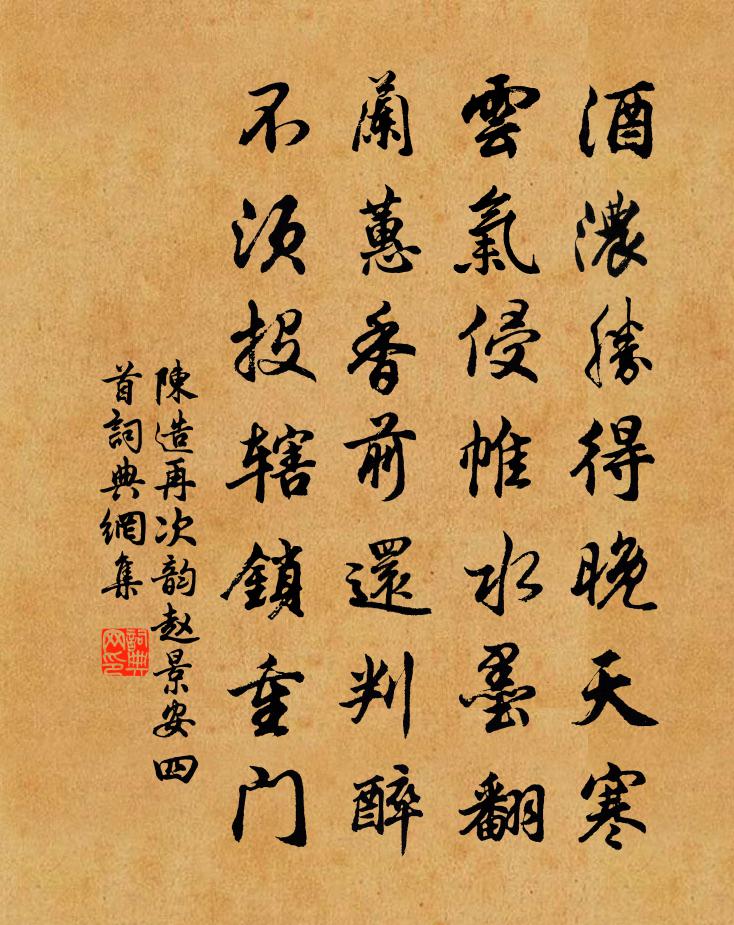 酒濃勝得晚天寒
雲氣侵帷水墨翻
蘭蕙香前還判醉
不須投辖鎖重門
陳造再次韵赵景安四
首詞典網集
詞典网印